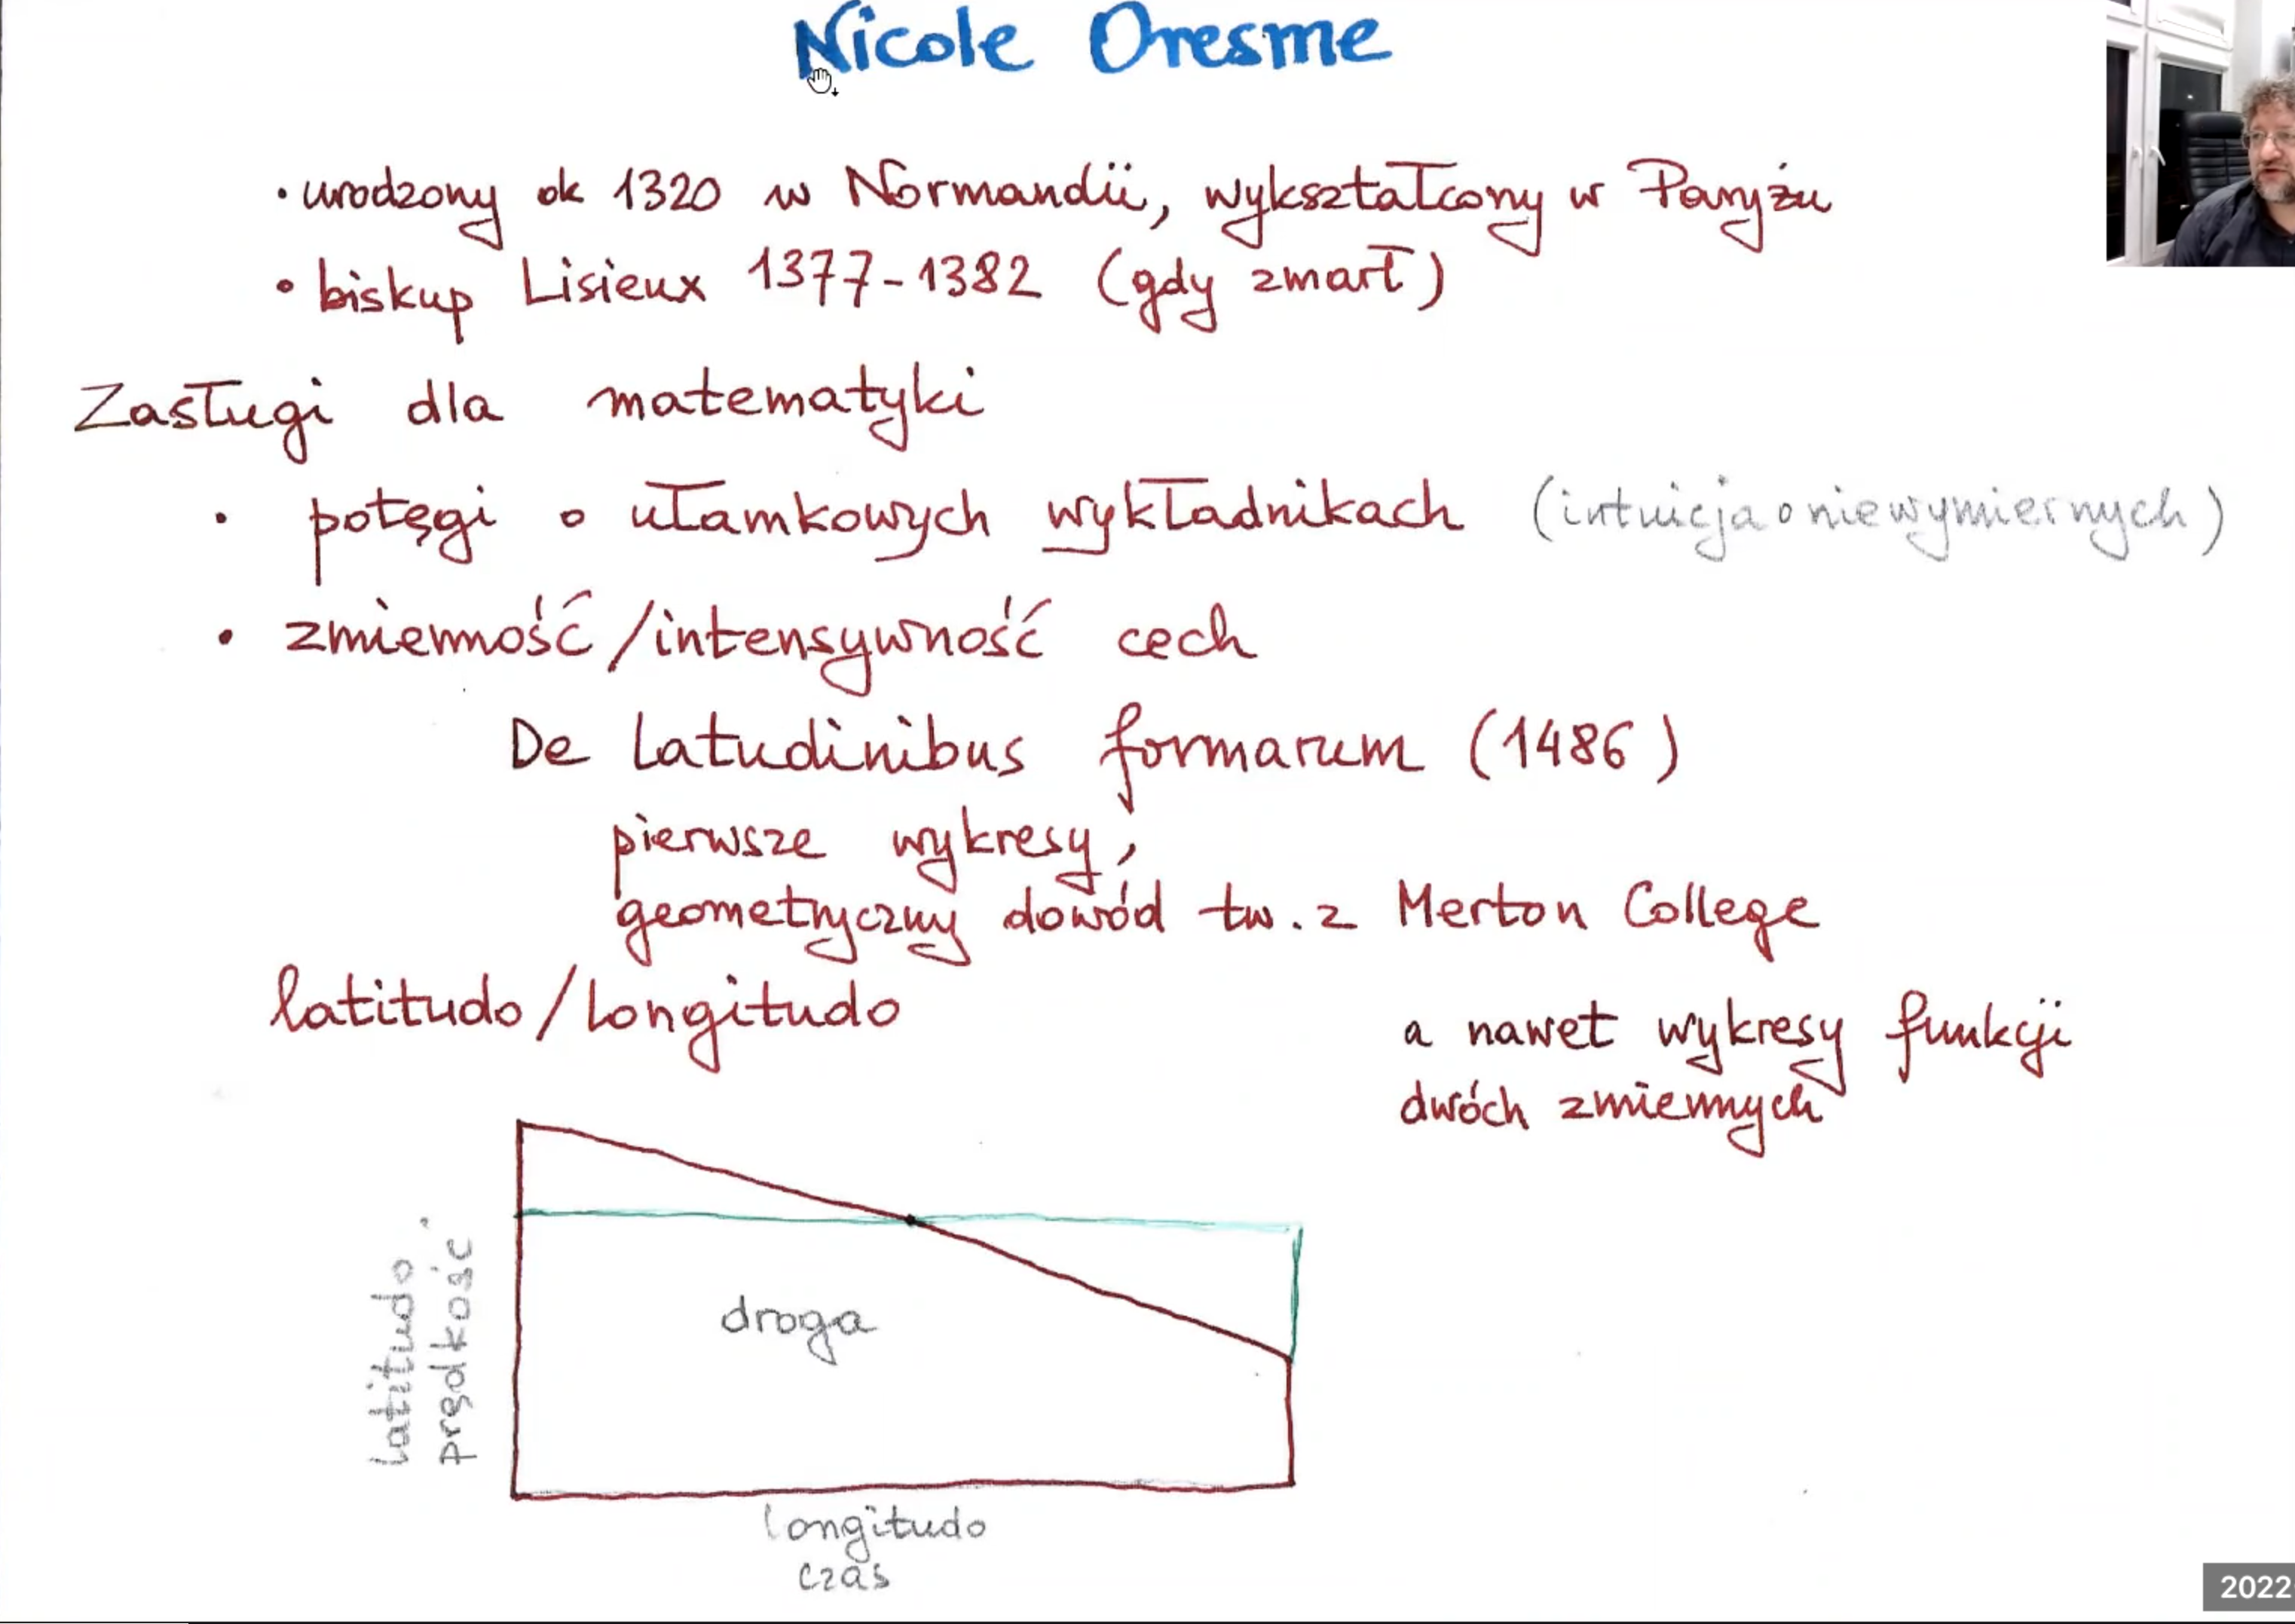 Nicole Oresme
• urodzony ok 1320 w Normandii, wykształcony w Paryżu
• biskup Lisieux 1377-1382 (gdy zmarł)
Zasługi dla matematyki
• potęgi o ułamkowych wykładnikach (intuicja o niewymiernych)
• zmienność/intensywność cech
De latudinibus formarum (1486)
pierwsze wykresy,
geometryczny dowód tw. z Merton College
latitudo/longitudo
a nawet wykresy funkcji
dwóch zmiennych
latitudo
prędkość
droga
longitudo
czas
2022